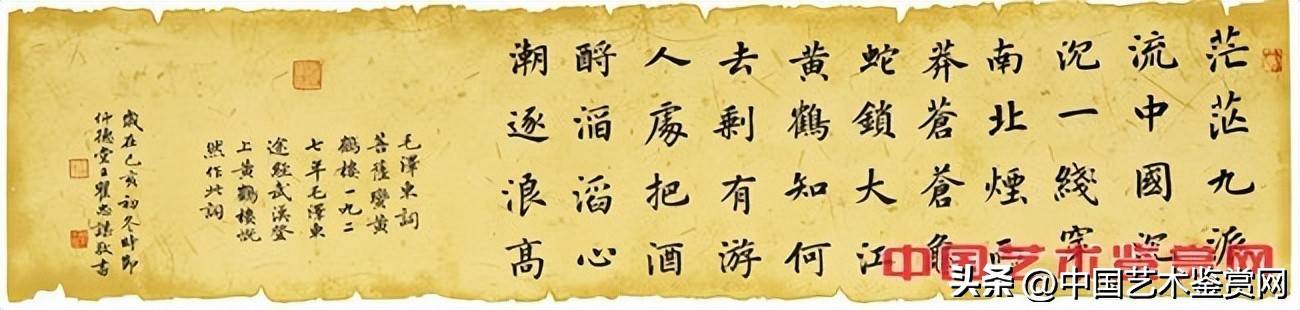 茫茫九派
流中國沉
沉一綫穿
南北煙雨
莽蒼蒼龜
蛇鎖大江
黃鶴知何
去剩有游
人處把酒
酹滔滔心
潮逐浪高
毛澤東詞
菩薩蠻黃
鶴樓一九二
七年毛澤東
途經武漢登
上黃鶴樓慨
然作此詞
歲在己亥初冬時
德堂瞿忠謀敬書
中国艺术鉴赏网
头条 @中国艺术鉴赏网